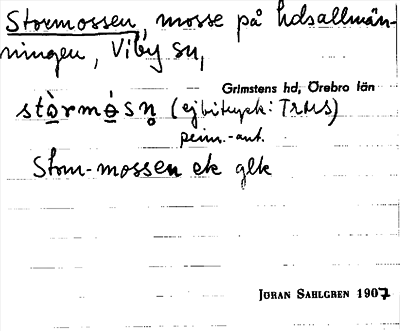 Stormossen, mosse på hdsallmän-
ningen, Viby sn,
Grimstens hd, Örebro län
stòrmòsn̥ (ej bitryck: TRMS)
peim.-ant.
Storm-mossen ek glk
JÖRAN SAHLGREN 1907